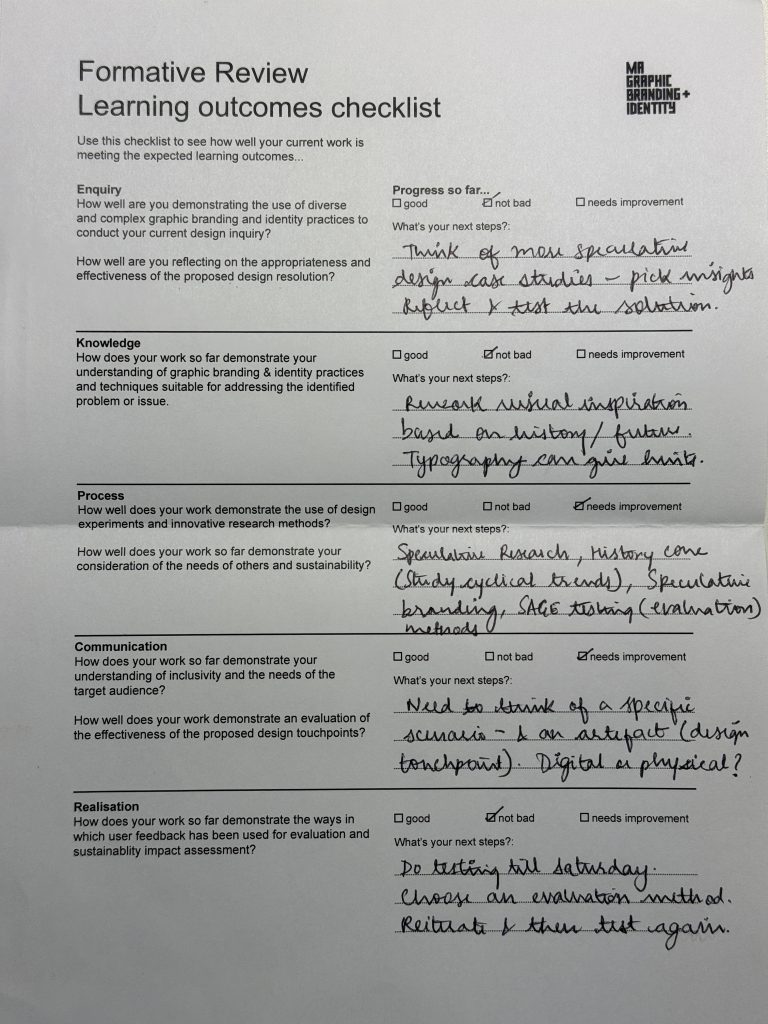 Formative Review
Learning outcomes checklist
MA
GRAPHIC
BRANDING+
IDENTITY
Use this checklist to see how well your current work is
meeting the expected learning outcomes...
Enquiry
How well are you demonstrating the use of diverse
and complex graphic branding and identity practices to
conduct your current design inquiry?
How well are you reflecting on the appropriateness and
effectiveness of the proposed design resolution?
Progress so far...
☐ good ☑ not bad ☐ needs improvement
What's your next steps?:
Think of more speculative
design case studies – pick insights
Reflect & test the solution.
Knowledge
How does your work so far demonstrate your
understanding of graphic branding & identity practices
and techniques suitable for addressing the identified
problem or issue.
☐ good ☑ not bad ☐ needs improvement
What's your next steps?:
Rework visual inspiration
based on history / future.
Typography can give hints.
Process
How well does your work demonstrate the use of design
experiments and innovative research methods?
How well does your work so far demonstrate your
consideration of the needs of others and sustainability?
☐ good ☐ not bad ☑ needs improvement
What's your next steps?:
Speculative Research, History cone
(Study cyclical trends), Speculative
branding, SAGE testing (evaluation)
methods
Communication
How does your work so far demonstrate your
understanding of inclusivity and the needs of the
target audience?
How well does your work demonstrate an evaluation of
the effectiveness of the proposed design touchpoints?
☐ good ☐ not bad ☑ needs improvement
What's your next steps?:
Need to think of a specific
scenario – & an artefact (design
touchpoint). Digital or physical?
Realisation
How does your work so far demonstrate the ways in
which user feedback has been used for evaluation and
sustainablity impact assessment?
☐ good ☑ not bad ☐ needs improvement
What's your next steps?:
Do testing till saturday.
Choose an evaluation method.
Reiterate & then test again.